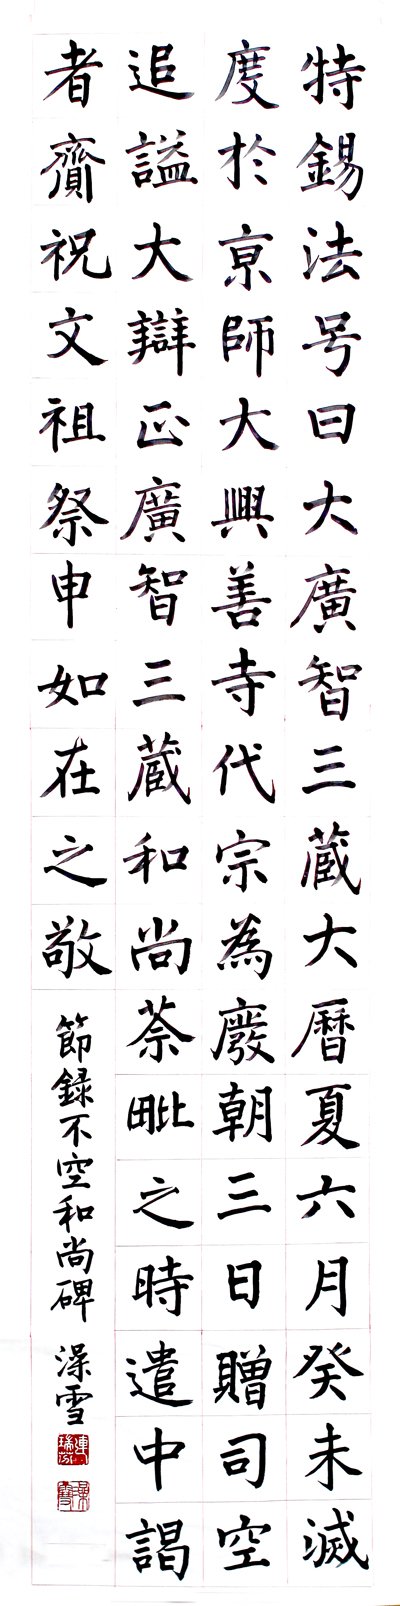 特錫法号曰大廣智三蔵大曆夏六月癸未滅
度於京師大興善寺代宗為廢朝三日贈司空
追謚大辯正廣智三蔵和尚荼毗之時遣中謁
者齎祝文祖祭申如在之敬
節録不空和尚碑 澡雪